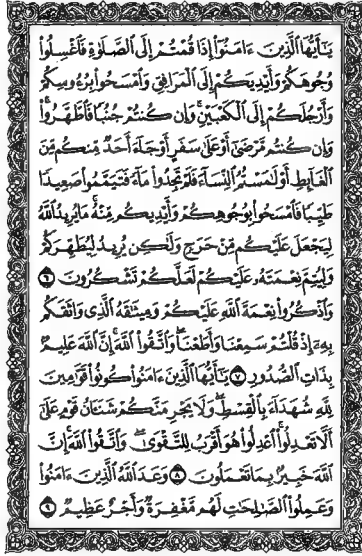 يَـٰٓأَيُّهَا ٱلَّذِينَ ءَامَنُوٓا۟ إِذَا قُمْتُمْ إِلَى ٱلصَّلَوٰةِ فَٱغْسِلُوا۟
وُجُوهَكُمْ وَأَيْدِيَكُمْ إِلَى ٱلْمَرَافِقِ وَٱمْسَحُوا۟ بِرُءُوسِكُمْ
وَأَرْجُلَكُمْ إِلَى ٱلْكَعْبَيْنِ ۚ وَإِن كُنتُمْ جُنُبًا فَٱطَّهَّرُوا۟ ۚ
وَإِن كُنتُم مَّرْضَىٰٓ أَوْ عَلَىٰ سَفَرٍ أَوْ جَآءَ أَحَدٌ مِّنكُم مِّنَ
ٱلْغَآئِطِ أَوْ لَـٰمَسْتُمُ ٱلنِّسَآءَ فَلَمْ تَجِدُوا۟ مَآءً فَتَيَمَّمُوا۟ صَعِيدًا
طَيِّبًا فَٱمْسَحُوا۟ بِوُجُوهِكُمْ وَأَيْدِيكُم مِّنْهُ ۚ مَا يُرِيدُ ٱللَّهُ
لِيَجْعَلَ عَلَيْكُم مِّنْ حَرَجٍ وَلَـٰكِن يُرِيدُ لِيُطَهِّرَكُمْ
وَلِيُتِمَّ نِعْمَتَهُۥ عَلَيْكُمْ لَعَلَّكُمْ تَشْكُرُونَ ٦
وَٱذْكُرُوا۟ نِعْمَةَ ٱللَّهِ عَلَيْكُمْ وَمِيثَـٰقَهُ ٱلَّذِى وَاثَقَكُم
بِهِۦٓ إِذْ قُلْتُمْ سَمِعْنَا وَأَطَعْنَا ۖ وَٱتَّقُوا۟ ٱللَّهَ ۚ إِنَّ ٱللَّهَ عَلِيمٌۢ
بِذَاتِ ٱلصُّدُورِ ٧ يَـٰٓأَيُّهَا ٱلَّذِينَ ءَامَنُوا۟ كُونُوا۟ قَوَّٰمِينَ
لِلَّهِ شُهَدَآءَ بِٱلْقِسْطِ ۖ وَلَا يَجْرِمَنَّكُمْ شَنَـَٔانُ قَوْمٍ عَلَىٰٓ
أَلَّا تَعْدِلُوا۟ ۚ ٱعْدِلُوا۟ هُوَ أَقْرَبُ لِلتَّقْوَىٰ ۖ وَٱتَّقُوا۟ ٱللَّهَ ۚ إِنَّ
ٱللَّهَ خَبِيرٌۢ بِمَا تَعْمَلُونَ ٨ وَعَدَ ٱللَّهُ ٱلَّذِينَ ءَامَنُوا۟
وَعَمِلُوا۟ ٱلصَّـٰلِحَـٰتِ ۙ لَهُم مَّغْفِرَةٌ وَأَجْرٌ عَظِيمٌ ٩